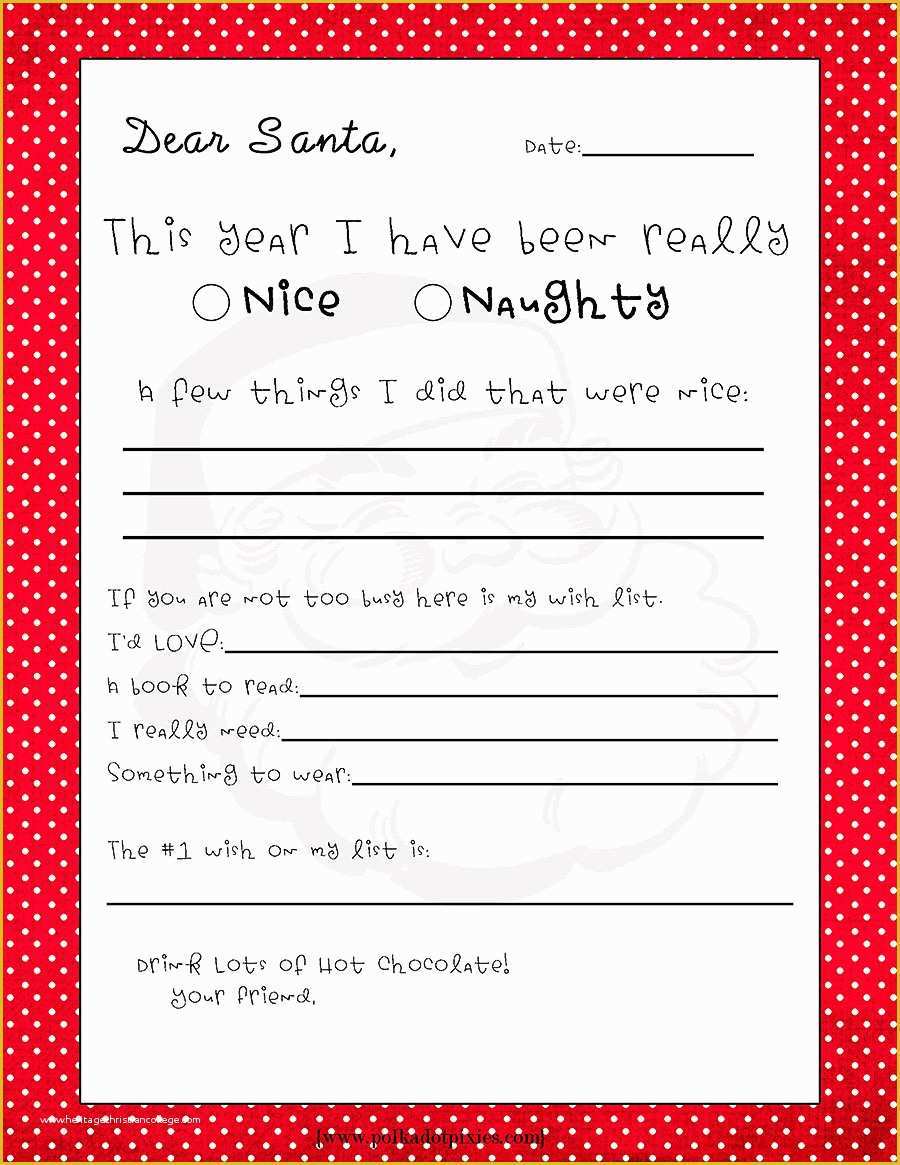 Dear Santa,
Date:
This year I have been really
Nice Naughty
A few things I did that were nice:
If you are not too busy here is my wish list.
I'd LOVE:
A book to read:
I really need:
Something to wear:
The #1 wish on my list is:
Drink Lots of Hot Chocolate!
Your friend,
www.heritagechristiancollege.com
{www.polkadotpixies.com}